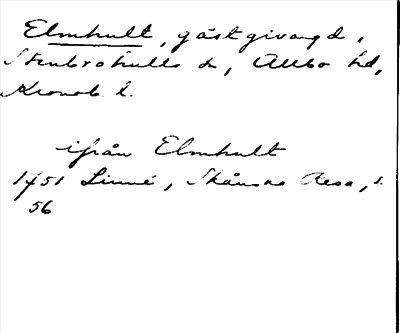 Elmhult, gästgivargd,
Stenbrohults sn, Allbo hd,
Kronob. l.
ifrån Elmhult
1751 Linné, Skånska Resa, s.
56